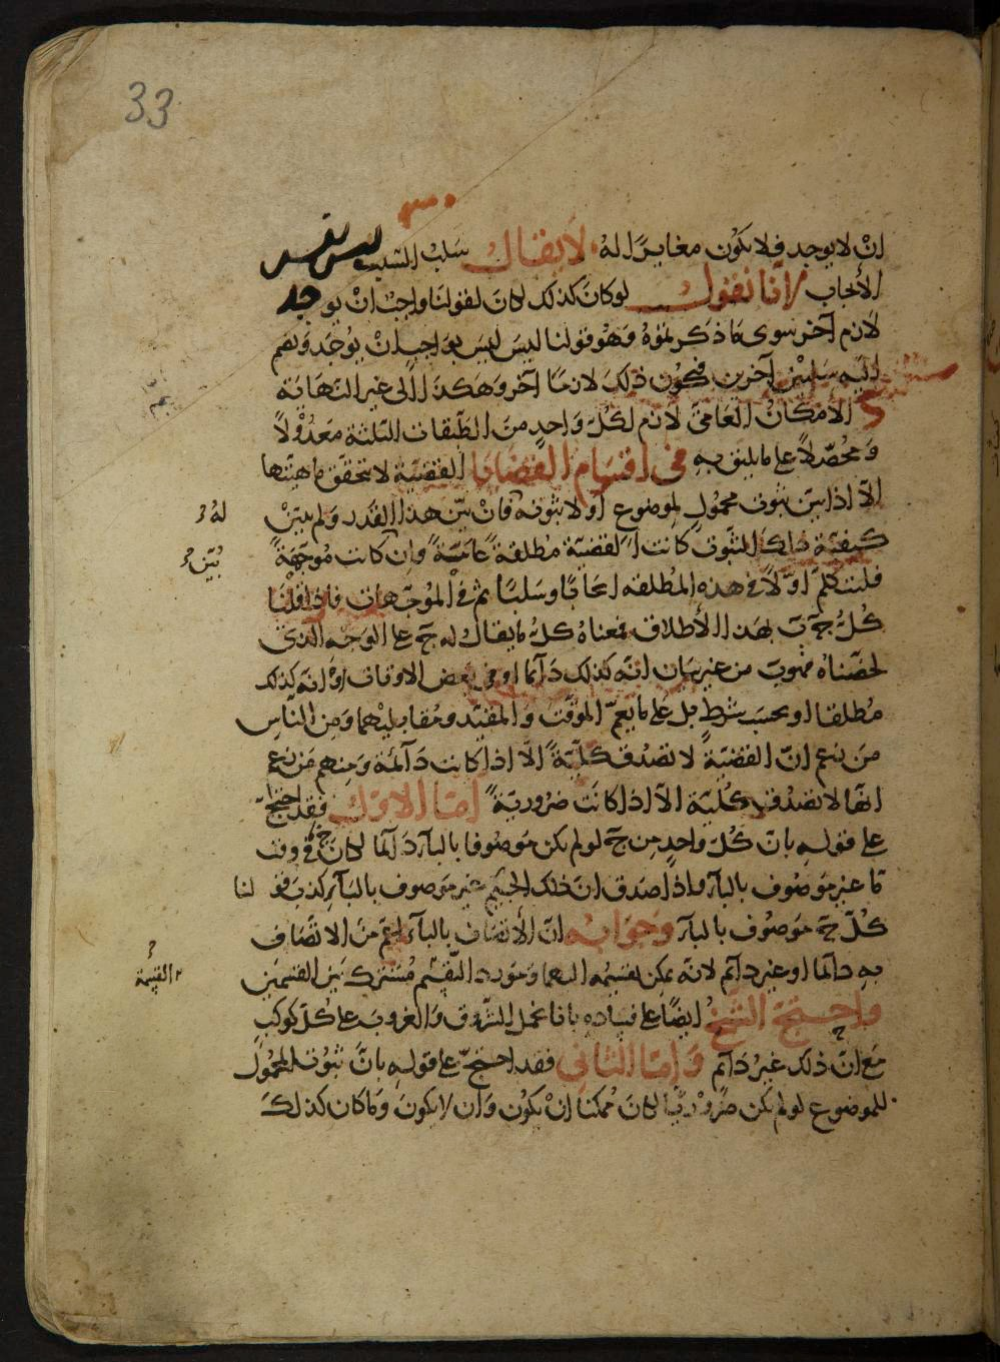 33
ان لا يوجد فلا يكون مغايرًا له لا يقال سلب السلب ليس نفس
الأيجاب لانا نقول لو كان كذلك لكان لقولنا واجب ان يوجد
لازم آخر سوى ما ذكرتموه وهو قولنا ليس ليس بواجب ان يوجد ونضم
اليه سلبين آخرين فيكون ذلك لازمًا آخر وهكذا الى غير النهاية
الأمكان العامى لازم لكل واحد من الطبقات الثلثة معدولًا
ومحصلًا على ما يليق به فى اقسام القضايا القضية لا تتحقق ماهيتها
الا اذا بين ثبوت محمول لموضوع او لا ثبوته فان بين هذا القدر ولم يبين
له
كيفية ذلك الثبوت كانت القضية مطلقة عامة وان كانت موجهة
بين
فلنتكلم اولًا فى هذه المطلقه ايجابًا وسلبًا ثم فى الموجهات فاذا قلنا
كل ج ب بهذا الأطلاق فمعناه كل ما يقال له ج على الوجه الذى
لخصناه فهو ب من غير بيان انه كذلك دآئما او فى بعض الاوقات او انه كذلك
مطلقا او بحسب شرط بل على ما يعم الموقت والمقيد ومقابليهما ومن الناس
من زعم ان القضية لا تصدق كلية الا اذا كانت دآئمة ومنهم من زعم
انها لا تصدق كلية الا اذا كانت ضرورية اما الاول فقد احتج
على قوله بان كل واحد من ج لو لم يكن موصوفا بالبآء دآئما لكان ج فى وقت
ما غير موصوف بالبآء واذا صدق ان ذلك الجيم غير موصوف بالبآء كذب قولنا
كل ج موصوف بالبآء وجوابه ان الأتصاف بالبآء اعم من الاتصاف
به دائما او غير دآئم لانه يمكن تقسيمه اليهما ومورد التقسيم مشترك بين القسمين
القسمة
واحتج الشيخ ايضًا على فساده بانا نحمل الشروق والغروب على كل كوكب
مع ان ذلك غير دآئم واما الثانى فقد احتج على قوله بان ثبوت المحمول
للموضوع لو لم يكن ضروريًا لكان ممكنا ان يكون وان لا يكون وما كان كذلك